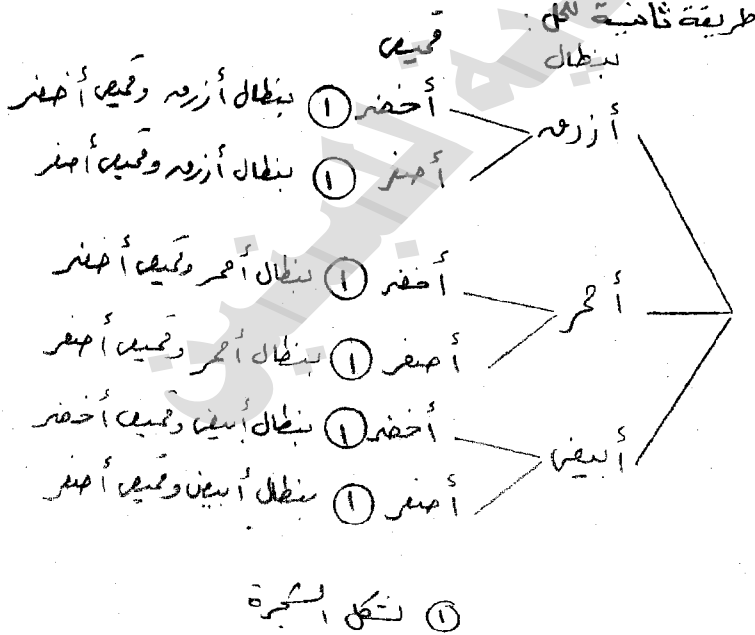 طريقة ثانية للحل :
بنطال قميص
أزرق أخضر ① بنطال أزرق وقميص أخضر
أصفر ① بنطال أزرق وقميص أصفر
أحمر أخضر ① بنطال أحمر وقميص أخضر
أصفر ① بنطال أحمر وقميص أصفر
أبيض أخضر ① بنطال أبيض وقميص أخضر
أصفر ① بنطال أبيض وقميص أصفر
① لشكل الشجرة